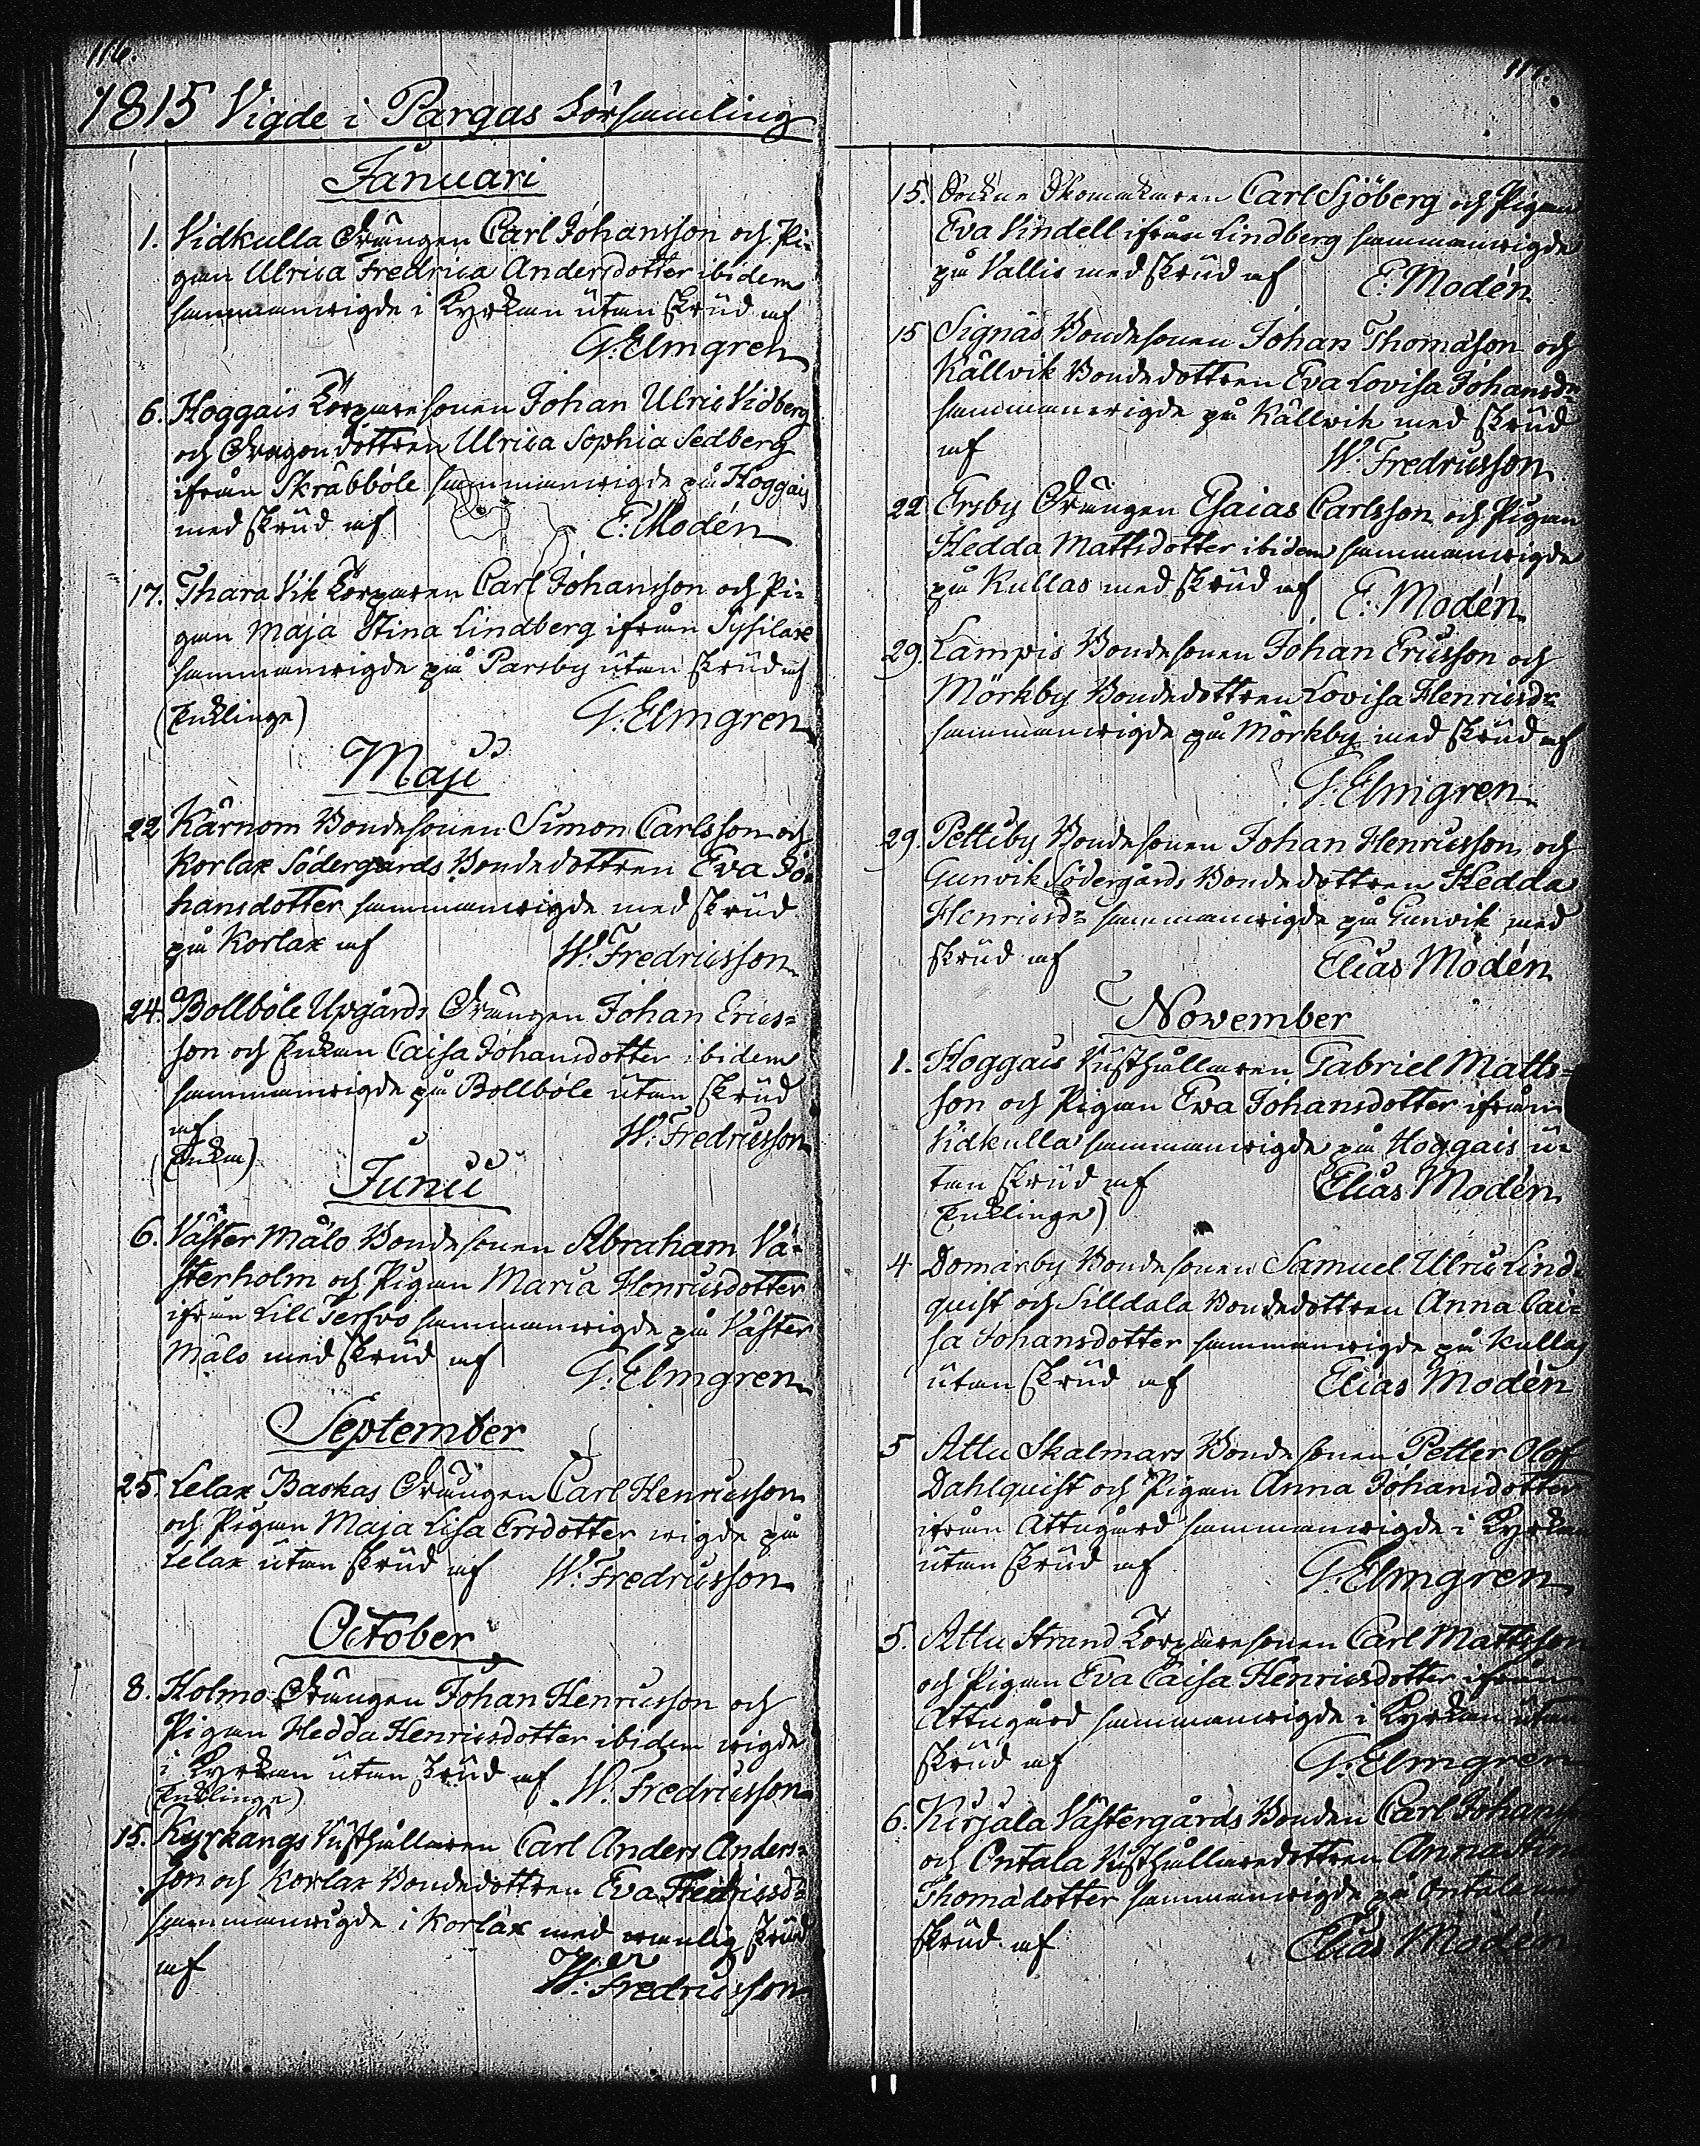 116.
1815 Vigde i Pargas Församling
Januari
1. Vidkulla Drängen Carl Johansson och Pi-
gan Ulrica Fredrica Andersdotter ibidem
sammanvigde i Kyrkan utan skrud af
G. Elmgren
6. Hoggais Torparesonen Johan Ulric Vidberg
och Dragondottren Ulrica Sophia Sedberg
ifrån Skräbböle sammanvigde på Hoggais
med skrud af E. Modén
17. Tharavik Torparen Carl Johansson och Pi-
gan Maja Stina Lindberg ifrån Sysilax
sammanvigde på Parsby utan skrud af
(Enklinge) G. Elmgren
Maji
22 Kärnom Bondesonen Simon Carlsson och
Korlax Södergårds Bondedottren Eva Jo-
hansdotter sammanvigde med skrud
på Korlax af W. Fredricsson
24. Bollböle Upgårds Drängen Johan Erics-
son och Enkan Caisa Johansdotter ibidem
sammanvigde på Bollböle utan skrud
af W. Fredricsson
(Enka)
Junii
6. Väster Målo Bondesonen Abraham Vä-
sterholm och Pigan Maria Henricsdotter
ifrån Lill Tervo sammanvigde på Väster
Målo med skrud af G. Elmgren
September
25. Lelax Backas Drängen Carl Henricsson
och Pigan Maja Lisa Ersdotter vigde på
Lelax utan skrud af W. Fredricsson
October
8. Holmo Drängen Johan Henricsson och
Pigan Hedda Henricsdotter ibidem vigde
i Kyrkan utan skrud af W. Fredricsson
(Enklinge)
15. Kyrkängs Rusthållaren Carl Anders Anders-
son och Korlax Bondedottren Eva Fredricsd:r
sammanvigde i Korlax med vanlig skrud
af W. Fredricsson
117.
15. Sockne Skomakaren Carl Sjöberg och Pigan
Eva Vindell ifrån Lindberg sammanvigde
på Vallis med skrud af E. Modén
15 Signäs Bondesonen Johan Thomason och
Källvik Bondedottren Eva Lovisa Johansd:r
sammanvigde på Källvik med skrud
af W. Fredricsson
22 Ersby Drängen Esaias Carlsson och Pigan
Hedda Mattsdotter ibidem sammanvigde
på Kullas med skrud af E. Modén
29. Lampis Bondesonen Johan Ericsson och
Mörkby Bondedottren Lovisa Henricsd:r
sammanvigde på Mörkby med skrud af
G. Elmgren
29. Pettiby Bondesonen Johan Henricsson och
Gunvik Södergårds Bondedottren Hedda
Henricsd:r sammanvigde på Gunvik med
skrud af Elias Modén
November
1. Hoggais Rusthållaren Gabriel Matts-
son och Pigan Eva Johansdotter ifrån
Vidkulla sammanvigde på Hoggais u-
tan skrud af Elias Modén
Enklinge)
4 Domarby Bondesonen Samuel Ulric Lind-
quist och Silldala Bondedottren Anna Cai-
sa Johansdotter sammanvigde på Kullas
utan skrud af Elias Modén
5 Attu Skalmars Bondesonen Petter Olof
Dahlquist och Pigan Anna Johansdotter
ifrån Attugård sammanvigde i Kyrkan
utan skrud af G. Elmgren
5. Attu Strand Torparesonen Carl Mattsson
och Pigan Eva Caisa Henricsdotter ifrån
Attugård sammanvigde i Kyrkan utan
skrud af G. Elmgren
6. Kirjala Västergårds Bonden Carl Johans
och Ontala Rusthållaredottren Anna Stina
Thomadotter sammanvigde på Ontala med
skrud af Elias Modén